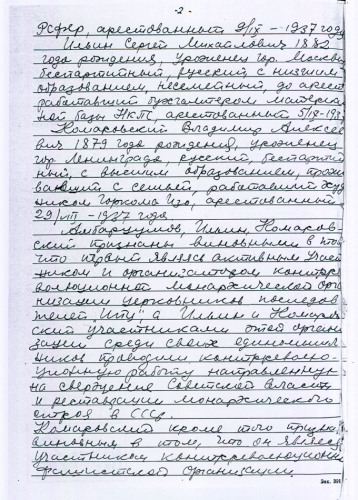 - 2 -
РСФСР, арестованный 9/IX - 1937 года
Ильин Сергей Михайлович 1882
года рождения, уроженец гор. Москвы
беспартийный, русский, с низшим
образованием, несемейный, до арест
работавший бухгалтером материа
ной базы НКТП, арестованный 5/IX-193
Комаровский Владимир Алексее
вич 1879 года рождения, уроженец
гор Ленинграда, русский, беспартий
ный, с высшим образованием, прожи
вающий с семьей, работавший худ
ником горкома Изо, арестованный
29/VIII - 1937 года.
Амбарцумов, Ильин, Комаров-
ский признаны виновными в том
что первый являясь активным участ
ником и организатором контрре
волюционной монархической орга
низации церковников последова
телей "ИПЦ", а Ильин и Комаров
ский участниками этой органи
зации среди своих единомышлен
ников проводили контрреволю-
ционную работу направленную
на свержение Советской власти
и реставрации монархического
строя в СССР.
Комаровский кроме того признан
виновным в том, что он являлся
участником контрреволюционн
фашистской организации.
Зак. 391